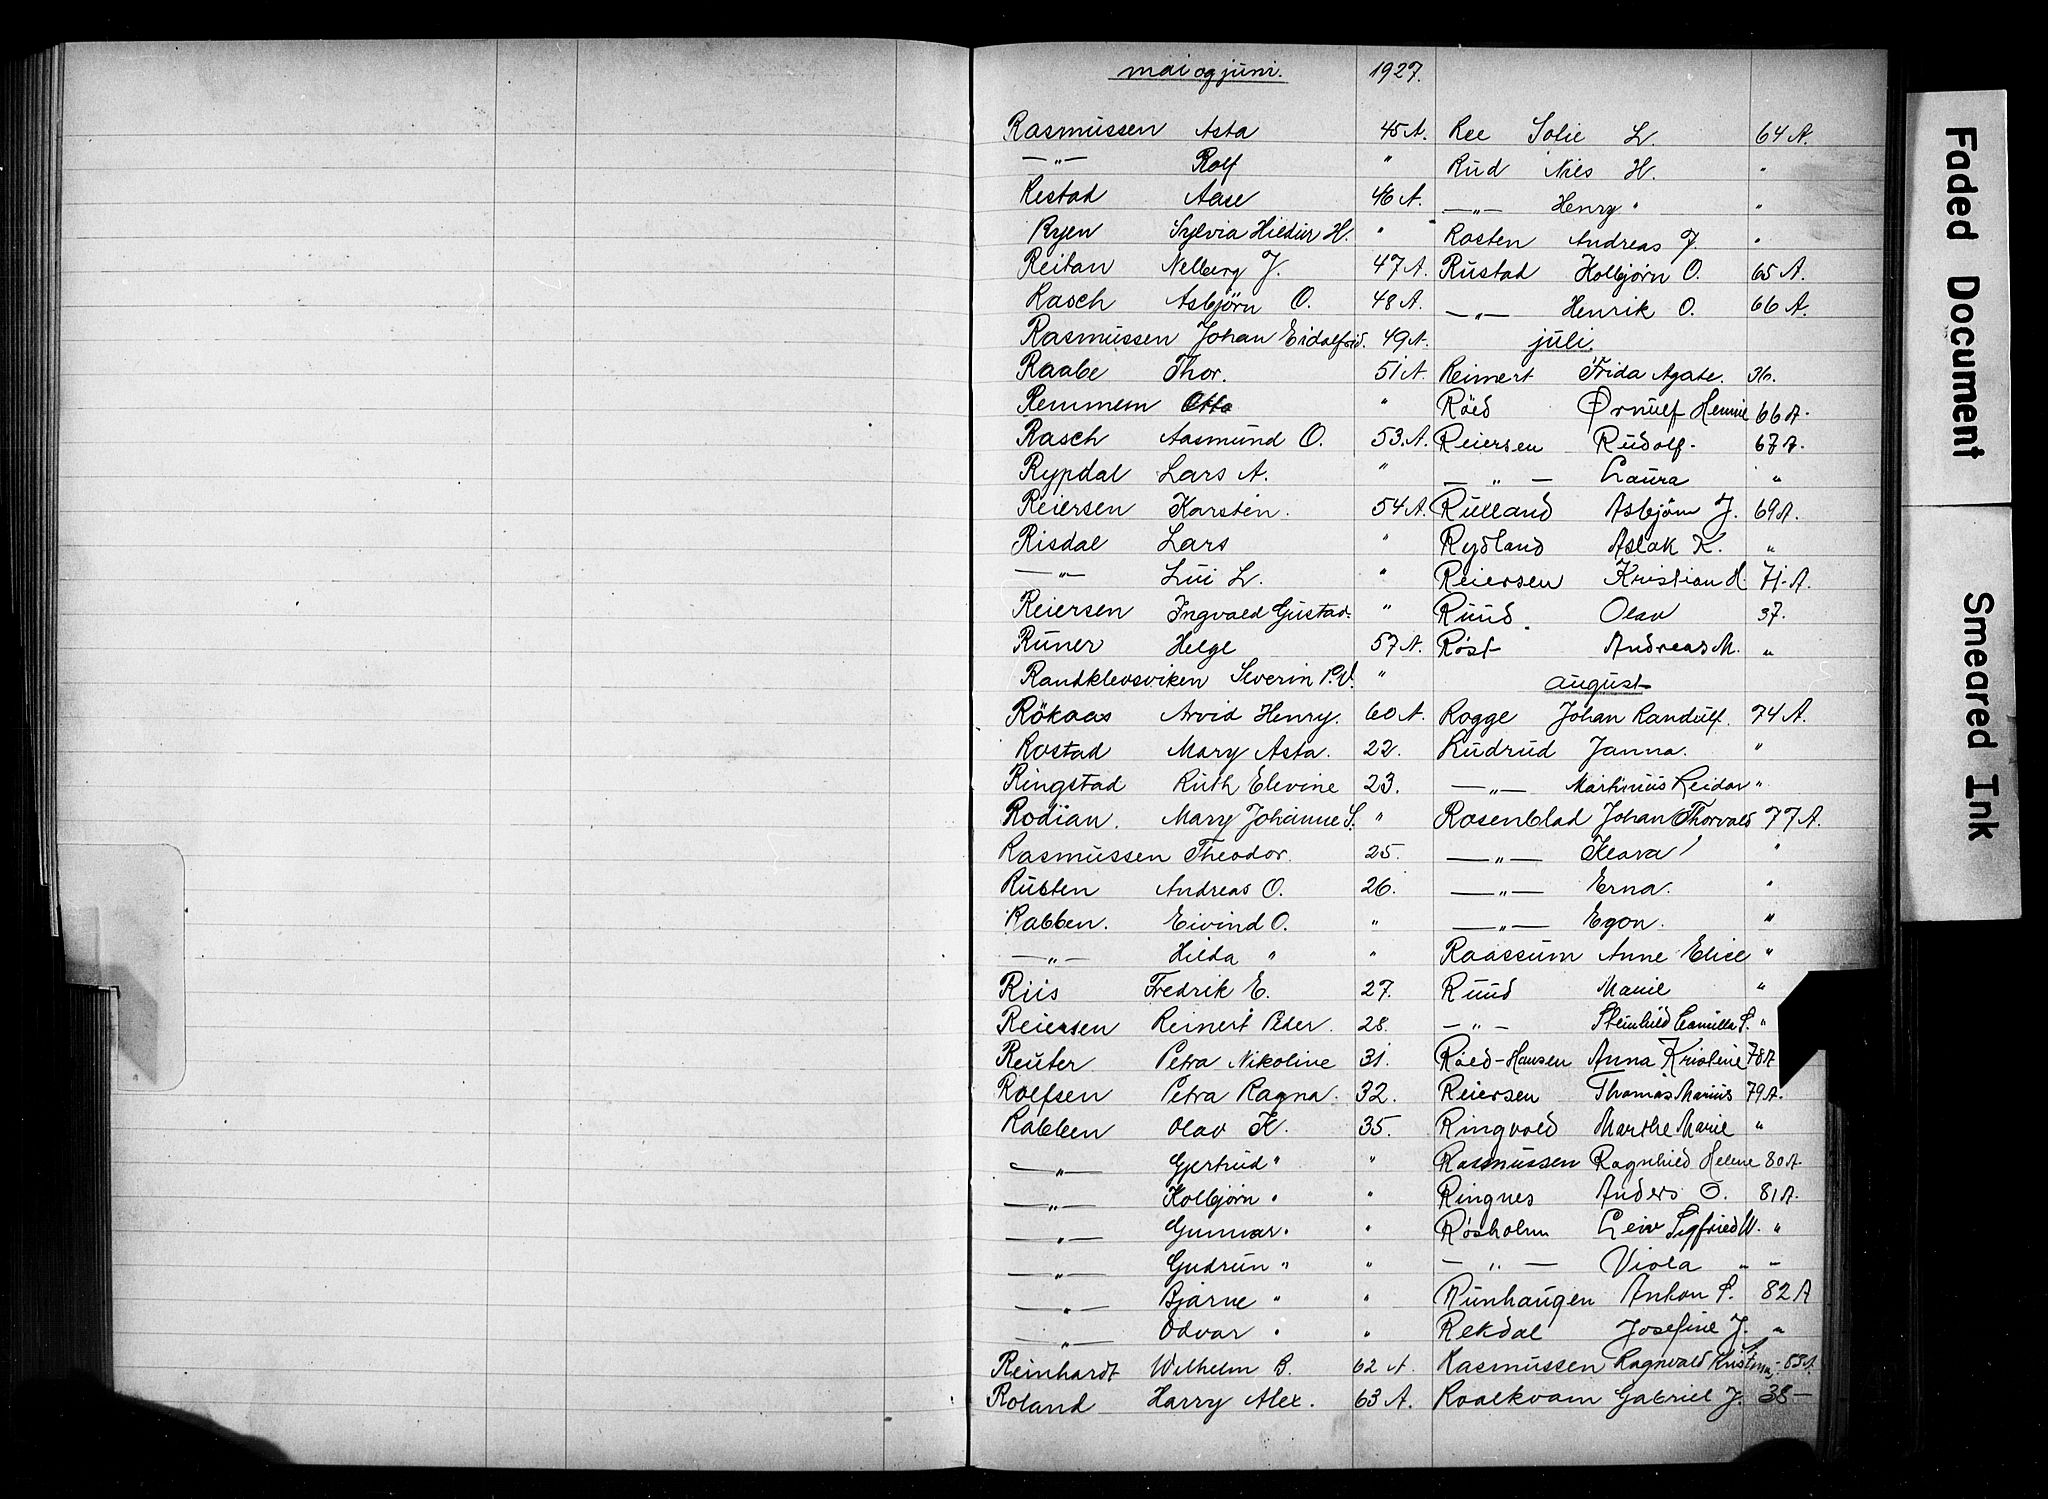 mai og juni. 1927.
Rasmussen Asta 45 A.
—"— Rolf "
Restad Aase 46 A.
Ryen Sylvia Hildur H. "
Reitan Nelberg J. 47 A.
Rasch Asbjörn O. 48 A.
Rasmussen Johan Eidalfrid. 49 A.
Raabe Thor. 51 A.
Remmem Otto "
Rasch Aasmund O. 53. A.
Rypdal Lars A. "
Reiersen Karsten. 54 A.
Risdal Lars "
—"— Lui L. "
Reiersen Ingvald Gustad. "
Runer Helge 57 A.
Randklevsviken Severin P.V. "
Rökaas Arvid Henry. 60 A.
Rostad Mary Asta. 22.
Ringstad Ruth Elevine 23.
Rodian. Mary Johanne S. "
Rasmussen Theodor. 25.
Rusten Andreas O. 26.
Rabben. Eivind O. "
—"— Hilda " "
Riis Fredrik E. 27.
Reiersen Reinert Peder. 28.
Reuter Petra Nikoline 31.
Rolfsen Petra Ragna. 32.
Rabben Olav K. 35.
—"— Gjertrud " "
—"— Kolbjörn " "
—"— Gunnar " "
—"— Gudrun " "
—"— Bjarne " "
—"— Odvar " "
Reinhardt Wilhelm B. 62 A.
Roland Harry Alex. 63 A.
Ree Sofie L. 64 A.
Rud Nils H. "
—"— Henry " "
Rosten Andreas J. "
Rustad Kolbjörn O. 65 A.
—"— Henrik O. 66 A.
juli
Reimert Frida Agate. 36.
Röed Ørnulf Hennie 66 A.
Reiersen Rudolf. 67 A.
— " — Laura "
Ruxland Asbjörn J. 69 A.
Rydland Aslak K. "
Reiersen Kristian H. 71. A.
Ruud Olav 37.
Røst Andreas M. "
august
Rogge Johan Randulf. 74 A.
Rudrud Janna. "
—"— Martinius Reidar "
Rosenblad Johan Thorvald 77 A.
—"— Klara "
—"— Erna. "
—"— Egon. "
Raassum Anne Elise "
Ruud Marie "
— " — Steinhild Camilla S. "
Röed-Hansen Anna Kristine 78 A
Reiersen Thomas Marius 79 A.
Ringvold Marthe Marie "
Rasmussen Ragnhild Helene 80 A.
Ringnes Anders O. 81 A.
Røsholm Leiv Sigfried W. "
— " — Viola " "
Runhaugen Anton S. 82 A
Rekdal Josefine J. "
Rasmussen Ragnvald 83 A.
Roalkvam Gabriel J. 38—
Faded Document
Smeared Ink